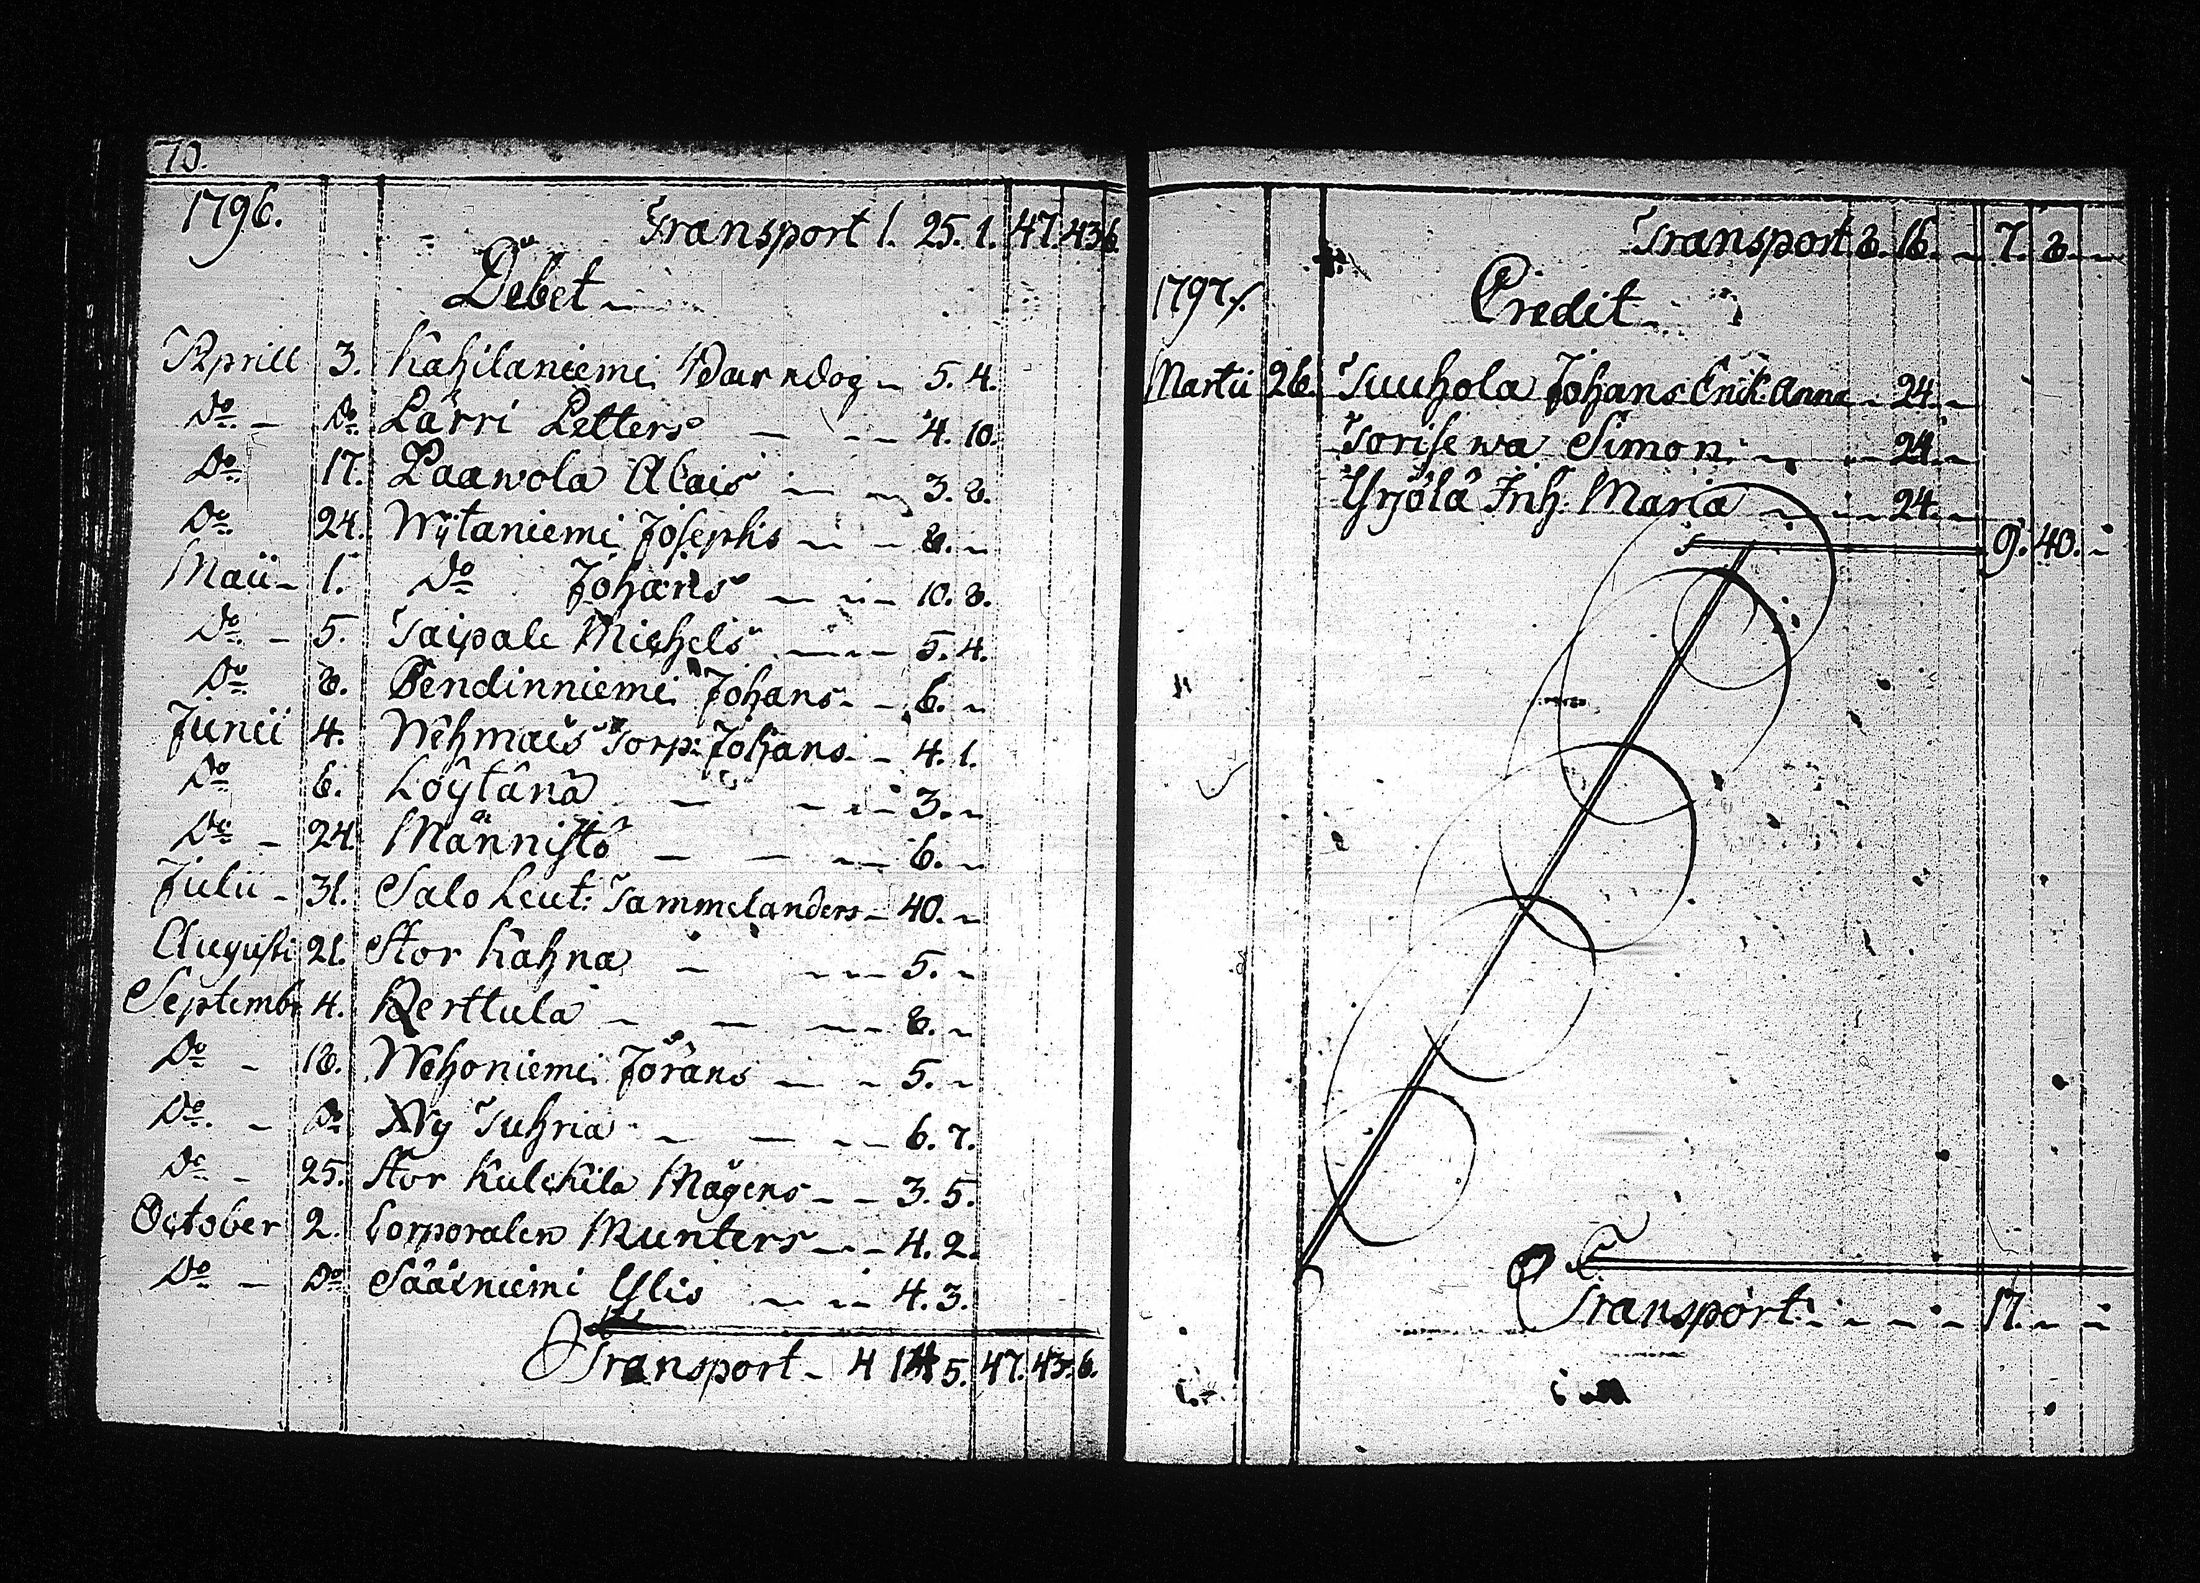 70.
1796. Transport 1. 25. 1. 47. 43. 6
Debet
Aprill 3. Kahilaniemi Barndog 5. 4.
Do Do Lärri Petters 4. 10.
Do 17. Paawola Alais 3. 8.
Do 24. Wÿtaniemi Josephs 8.
Maii 1. Do Johans 10. 8.
Do 5. Taipale Michels 5. 4.
Do 8. Bendinniemi Johans 6.
Junii 4. Wehmais Torp: Johans 4. 1.
Do 6. Löÿtänä 3.
Do 24. Männistö 6.
Julii 31. Salo Leut: Tammelanders 40.
Augusti 21. Stor Kahna 5.
Septembr 4. Kerttula 8.
Do 18. Wehoniemi Jörans 5.
Do Do Ny Tuhria 6. 7.
Do 25. Stor Kulckila Mågens 3. 5.
October 2. Corporalen Munters 4. 2.
Do Do Sääxniemi Ylis 4. 3.
Transport 4 5. 47. 43. 6.
Transport 8. 16. 7. 8.
1797.
Credit
Martii 26. Tuuhola Johans Erik: Anna 24.
Torisewa Simon 24.
Yrjölä Inh: Maria 24.
9. 40.
Transport 17.